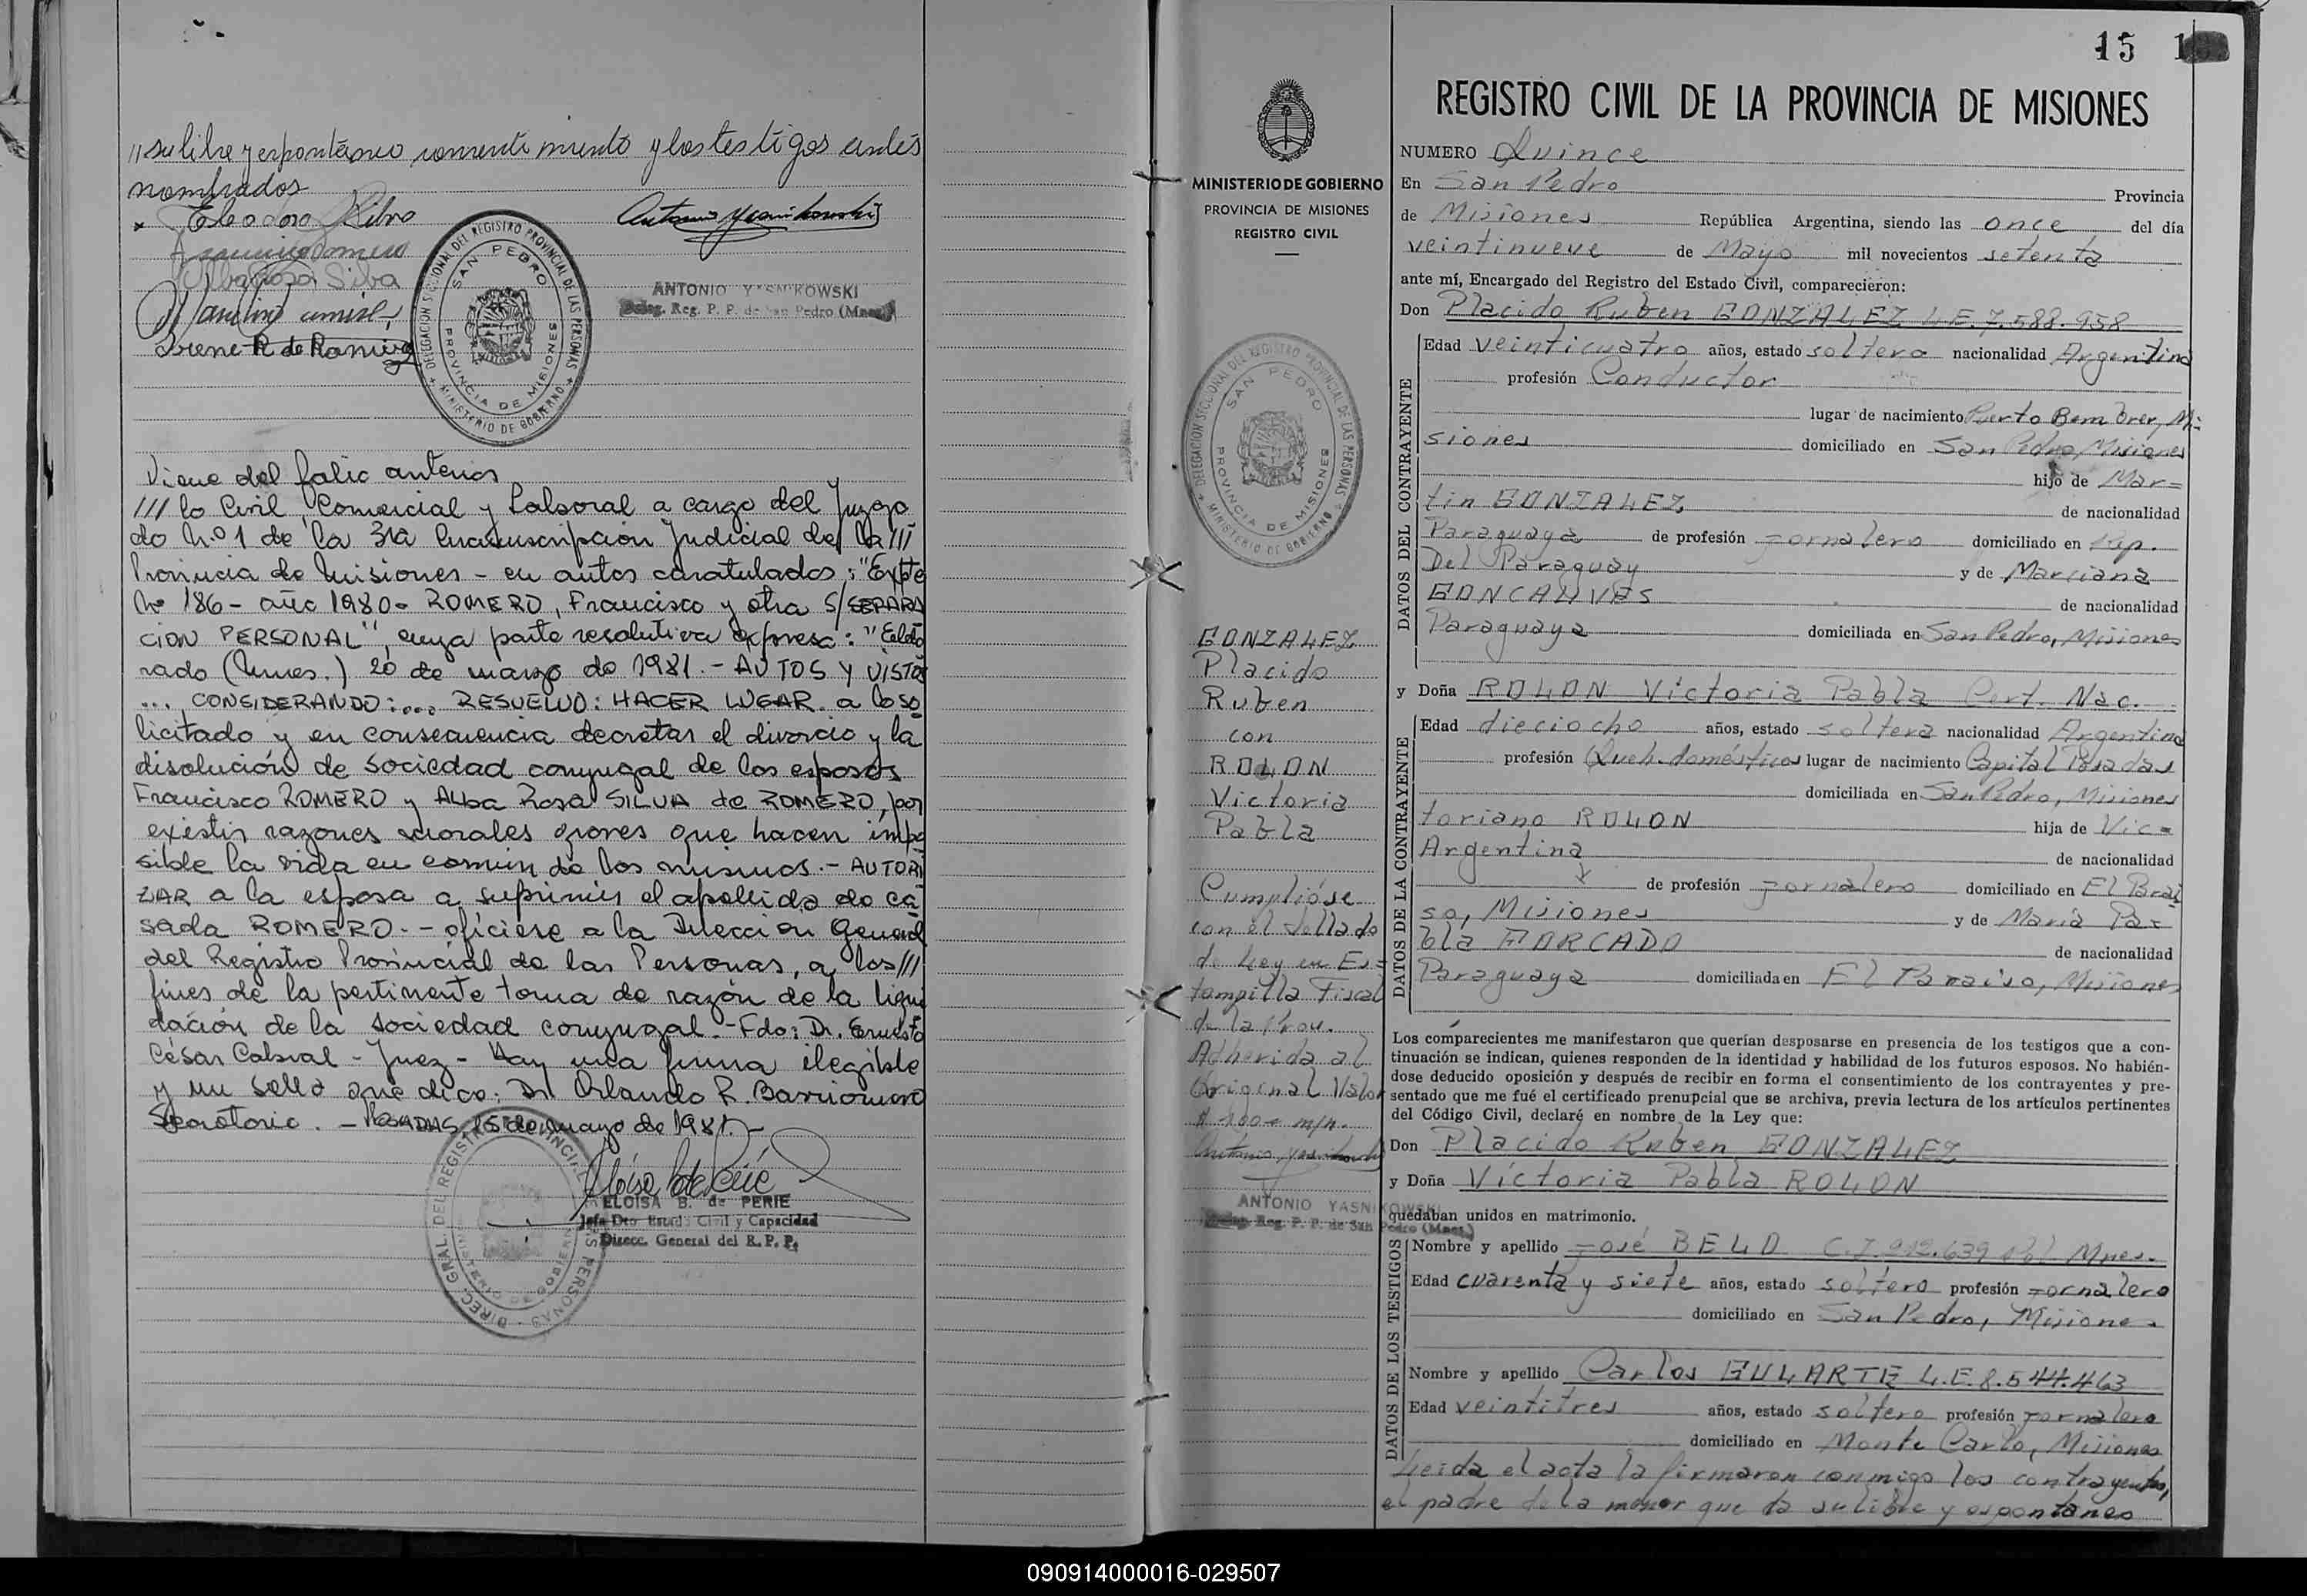 // su libre y espontáneo consentimiento y los testigos antes
nombrados
Eleodoro Silva
Francisco Romero
Alba Rosa Silva
Irene R de Ramirez
DELEGACION SECCIONAL DEL REGISTRO PROVINCIAL DE LAS PERSONAS
SAN PEDRO
PROVINCIA DE MISIONES
MINISTERIO DE GOBIERNO
Antonio Yasnikowski
ANTONIO YASNIKOWSKI
Deleg. Reg. P. P. de San Pedro (Mnes.)
Viene del folio anterior
/// lo Civil, Comercial y Laboral a cargo del Juzga
do N.º 1 de la 3ra Circunscripción Judicial de la ///
Provincia de Misiones - en autos caratulados: "Expte
Nº 186 - año 1980 - ROMERO, Francisco y otra S/ SEPARA
CION PERSONAL", cuya parte resolutiva expresa: "Eldo
rado (Mnes.) 20 de marzo de 1981. - AUTOS Y VISTOS
... CONSIDERANDO: ... RESUELVO: HACER LUGAR a lo so
licitado y en consecuencia decretar el divorcio y la
disolución de sociedad conyugal de los esposos
Francisco ROMERO y Alba Rosa SILVA de ROMERO, por
existir razones morales graves que hacen impo
sible la vida en común de los mismos. - AUTORI
ZAR a la esposa a suprimir el apellido de ca
sada ROMERO. - ofíciese a la Dirección General
del Registro Provincial de las Personas, a los ///
fines de la pertinente toma de razón de la liqui
dación de la sociedad conyugal. - Fdo: Dr. Ernesto
César Cabral - Juez - Hay una firma ilegible
y un sello que dice: Dr Orlando R. Barrionuevo
Secretario. - POSADAS, 15 de mayo de 1981. -
ELOISA B. de PERIE
Jefa Dto Estado Civil y Capacidad
Direcc. General del R. P. P.
MINISTERIO DE GOBIERNO
PROVINCIA DE MISIONES
REGISTRO CIVIL
DELEGACION SECCIONAL DEL REGISTRO PROVINCIAL DE LAS PERSONAS
SAN PEDRO
PROVINCIA DE MISIONES
MINISTERIO DE GOBIERNO
GONZALEZ
Placido
Ruben
con
ROLON
Victoria
Pabla
Cumplióse
con el sellado
de Ley en Es=
tampilla Fiscal
de la Prov.
Adherida al
Original Valor
$ 100= m/n.
Antonio Yasnikowski
ANTONIO YASNIKOWSKI
Deleg. Reg. P. P. de San Pedro (Mnes.)
15
REGISTRO CIVIL DE LA PROVINCIA DE MISIONES
NUMERO Quince
En San Pedro Provincia
de Misiones República Argentina, siendo las once del día
veintinueve de Mayo mil novecientos setenta
ante mí, Encargado del Registro del Estado Civil, comparecieron:
Don Placido Ruben GONZALEZ L.E. 7.588.958
DATOS DEL CONTRAYENTE
Edad veinticuatro años, estado soltero nacionalidad Argentina
profesión Conductor
lugar de nacimiento Puerto Bemberg, Mi=
siones domiciliado en San Pedro, Misiones
hijo de Mar=
tin GONZALEZ, de nacionalidad
Paraguaya de profesión Jornalero domiciliado en Rep.
Del Paraguay y de Marciana
GONCALVES de nacionalidad
Paraguaya domiciliada en San Pedro, Misiones
y Doña ROLON Victoria Pabla Cert. Nac.
DATOS DE LA CONTRAYENTE
Edad dieciocho años, estado soltera nacionalidad Argentina
profesión Queh. domésticos lugar de nacimiento Capital Posadas
domiciliada en San Pedro, Misiones
toriano ROLON hija de Vic=
Argentina de nacionalidad
de profesión Jornalero domiciliado en El Parai
so, Misiones y de María Pa=
bla FORCADO de nacionalidad
Paraguaya domiciliada en El Paraiso, Misiones
Los comparecientes me manifestaron que querían desposarse en presencia de los testigos que a con-
tinuación se indican, quienes responden de la identidad y habilidad de los futuros esposos. No habién-
dose deducido oposición y después de recibir en forma el consentimiento de los contrayentes y pre-
sentado que me fué el certificado prenupcial que se archiva, previa lectura de los artículos pertinentes
del Código Civil, declaré en nombre de la Ley que:
Don Placido Ruben GONZALEZ
y Doña Victoria Pabla ROLON
quedaban unidos en matrimonio.
DATOS DE LOS TESTIGOS
Nombre y apellido José BELO C.I. 212.639 Pol Mnes.
Edad cuarenta y siete años, estado soltero profesión Jornalero
domiciliado en San Pedro, Misiones
Nombre y apellido Carlos GULARTE L.E. 8.544.463
Edad veintitres años, estado soltero profesión Jornalero
domiciliado en Monte Carlo, Misiones
Leida el acta la firmaron conmigo los contrayentes,
el padre de la menor que da su libre y espontáneo
090914000016-029507